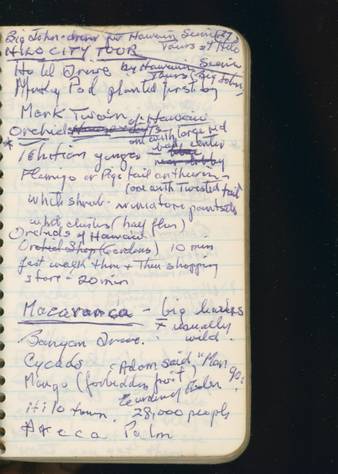 Big John - driver for Hawaiin Scenic
Tours at Hilo
HILO CITY TOUR
Hotel Drive by Hawaiin Scenic
Tours (Big John)
Monkey Pod planted first by
Mark Twain
Orchids of Hawaii
one with large red
center
* Tahitian ginger
Flamingo or Pig tail anthurium
(one with twisted tail
White shrub - miniature poinsettia
white clusters (half flower)
Orchids of Hawaii
(Gardens) 10 min
fast walk thru + then shopping
store - 20 min
Macaranga - big leaves
+ usually
wild.
Banyan Drive.
Cycads
(Adam said "Man
Mango (forbidden fruit)
Hilo town. 28,000 people
Areca Palm